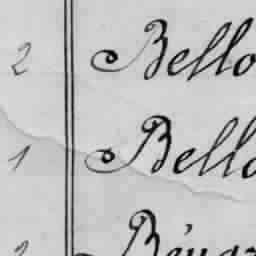 2 Bello
1 Bello
2 Béna